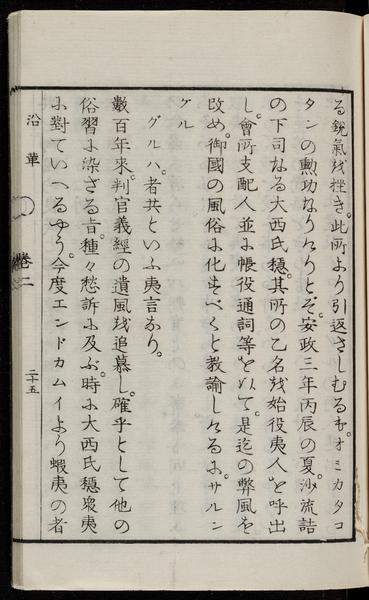 る銳氣を挫き。此所より引返さしむるも。オミカタコ
タンの勲功なりけりとぞ。安政三年丙辰の夏。沙流詰
の下司なる大西氏穏。其所の乙名を始役夷人を呼出
し。會所支配人並に帳役通詞等を以て。是迄の弊風を
改め。御國の風俗に化すべくと教諭しけるに。サルン
グル
グルハ。者共といふ夷言なり。
數百年來。判官義經の遺風を追慕し。確乎として他の
俗習に染ざる旨。種々愁訴に及ぶ。時に大西氏穏衆夷
に對ていへるやう。今度エンドカムイより蝦夷の者
沿革
卷二
二十五